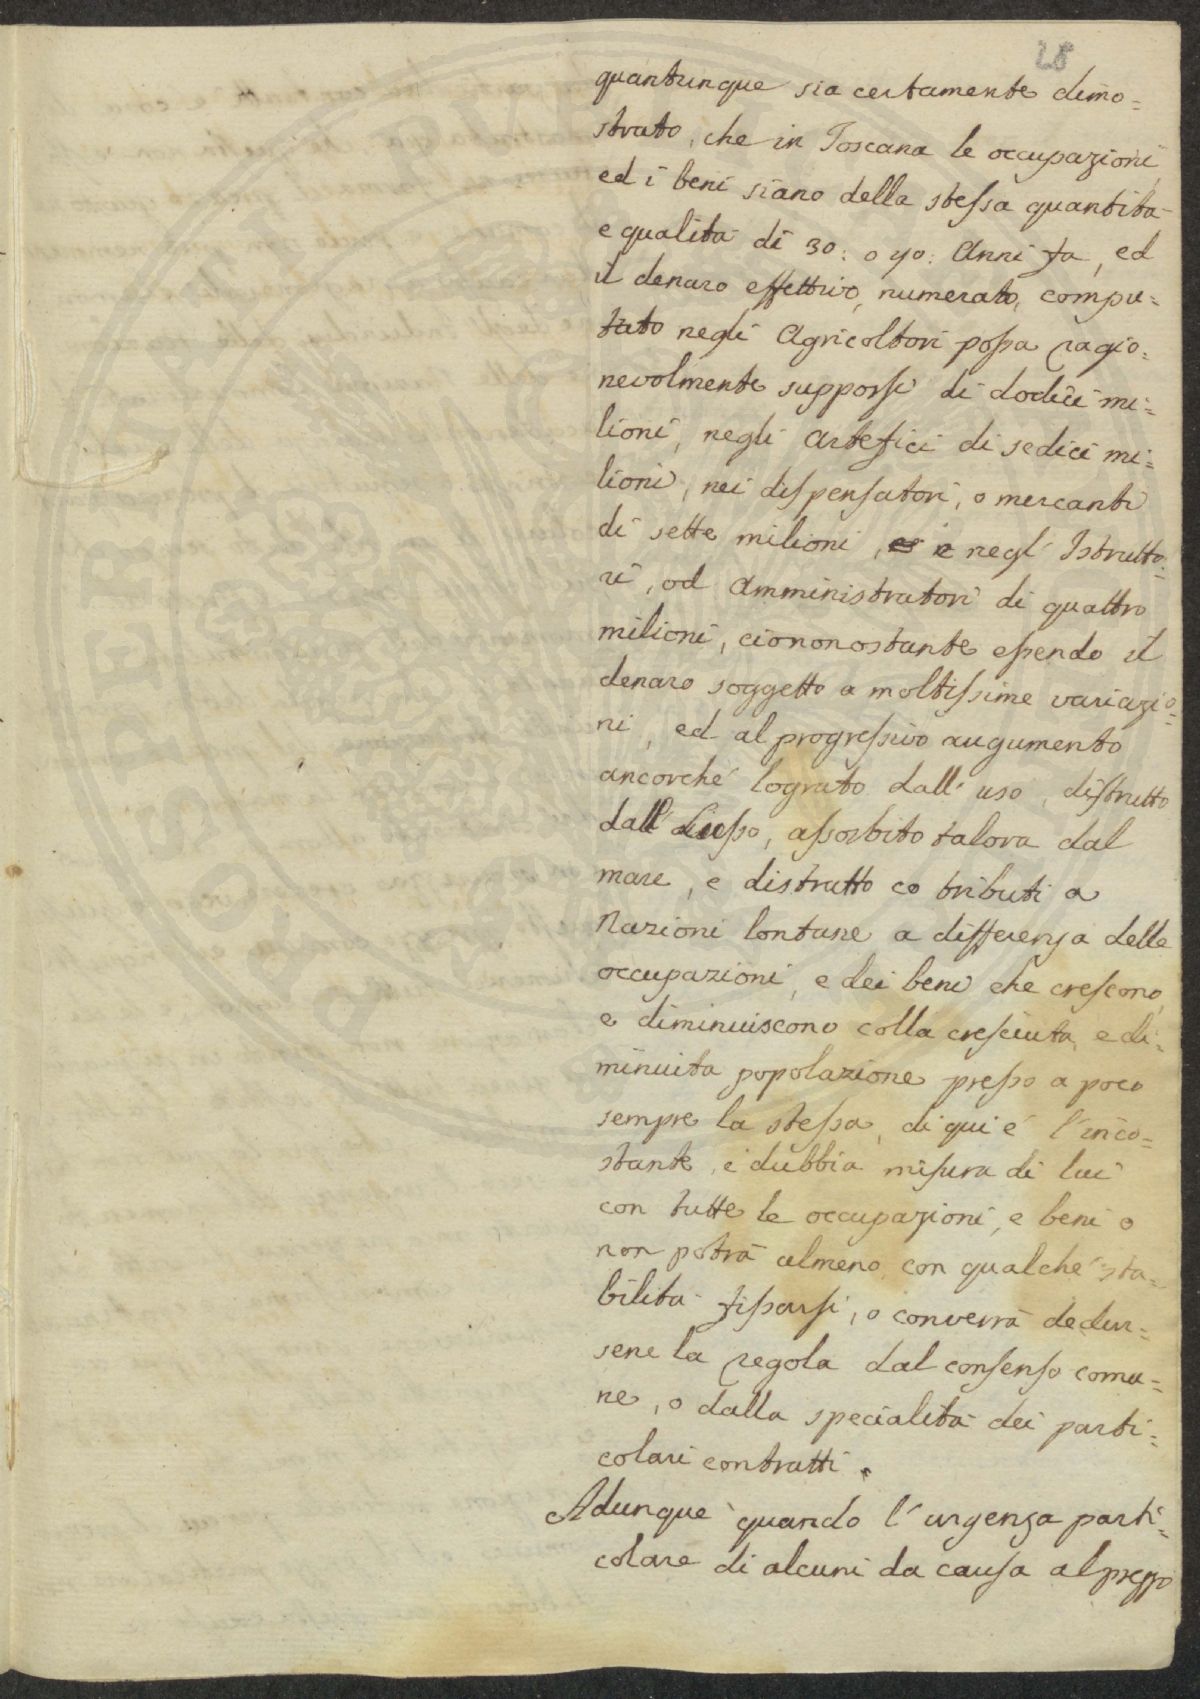 28
quantunque sia certamente dimo=
strato, che in Toscana le occupazioni,
ed i beni siano della stessa quantità
e qualità di 30: o 40: Anni fa, ed
il denaro effettivo, numerato, compu=
tato negli Agricoltori possa ragio=
nevolmente supporsi di dodici mi=
lioni, negli Artefici di sedici mi=
lioni, nei dispensatori, o mercanti
di sette milioni, e negl' Istrutto=
ri, od Amministratori di quattro
milioni, ciononostante essendo il
denaro soggetto a moltissime variazio=
ni, ed al progressivo augumento
ancorché lograto dall' uso, distrutto
dall Lusso, assorbito talora dal
mare, e distratto co tributi a
Nazioni lontane a differenza delle
occupazioni, e dei beni che crescono,
e diminuiscono colla cresciuta, e di=
minuita popolazione presso a poco
sempre la stessa, di qui é l' inco=
stante, e dubbia misura di lui
con tutte le occupazioni, e beni o
non potrà almeno con qualche sta=
bilità fissarsi, o converrà dedur=
sene la regola dal consenso comu=
ne, o dalla specialità dei parti=
colari contratti.
Adunque quando l' urgenza parti=
colare di alcuni da causa al prezzo